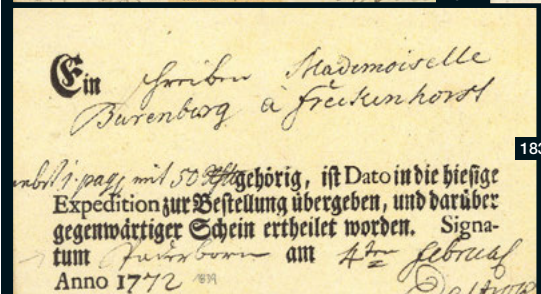 Ein schreiben Mademoiselle
Burenberg à Freckenhorst
183
nebst 1. paq mit 50 gehörig, ist Dato in die hiesige
Expedition zur Bestellung übergeben, und darüber
gegenwärtiger Schein ertheilet worden. Signa-
tum Paderborn am 4ten februar
Anno 1772